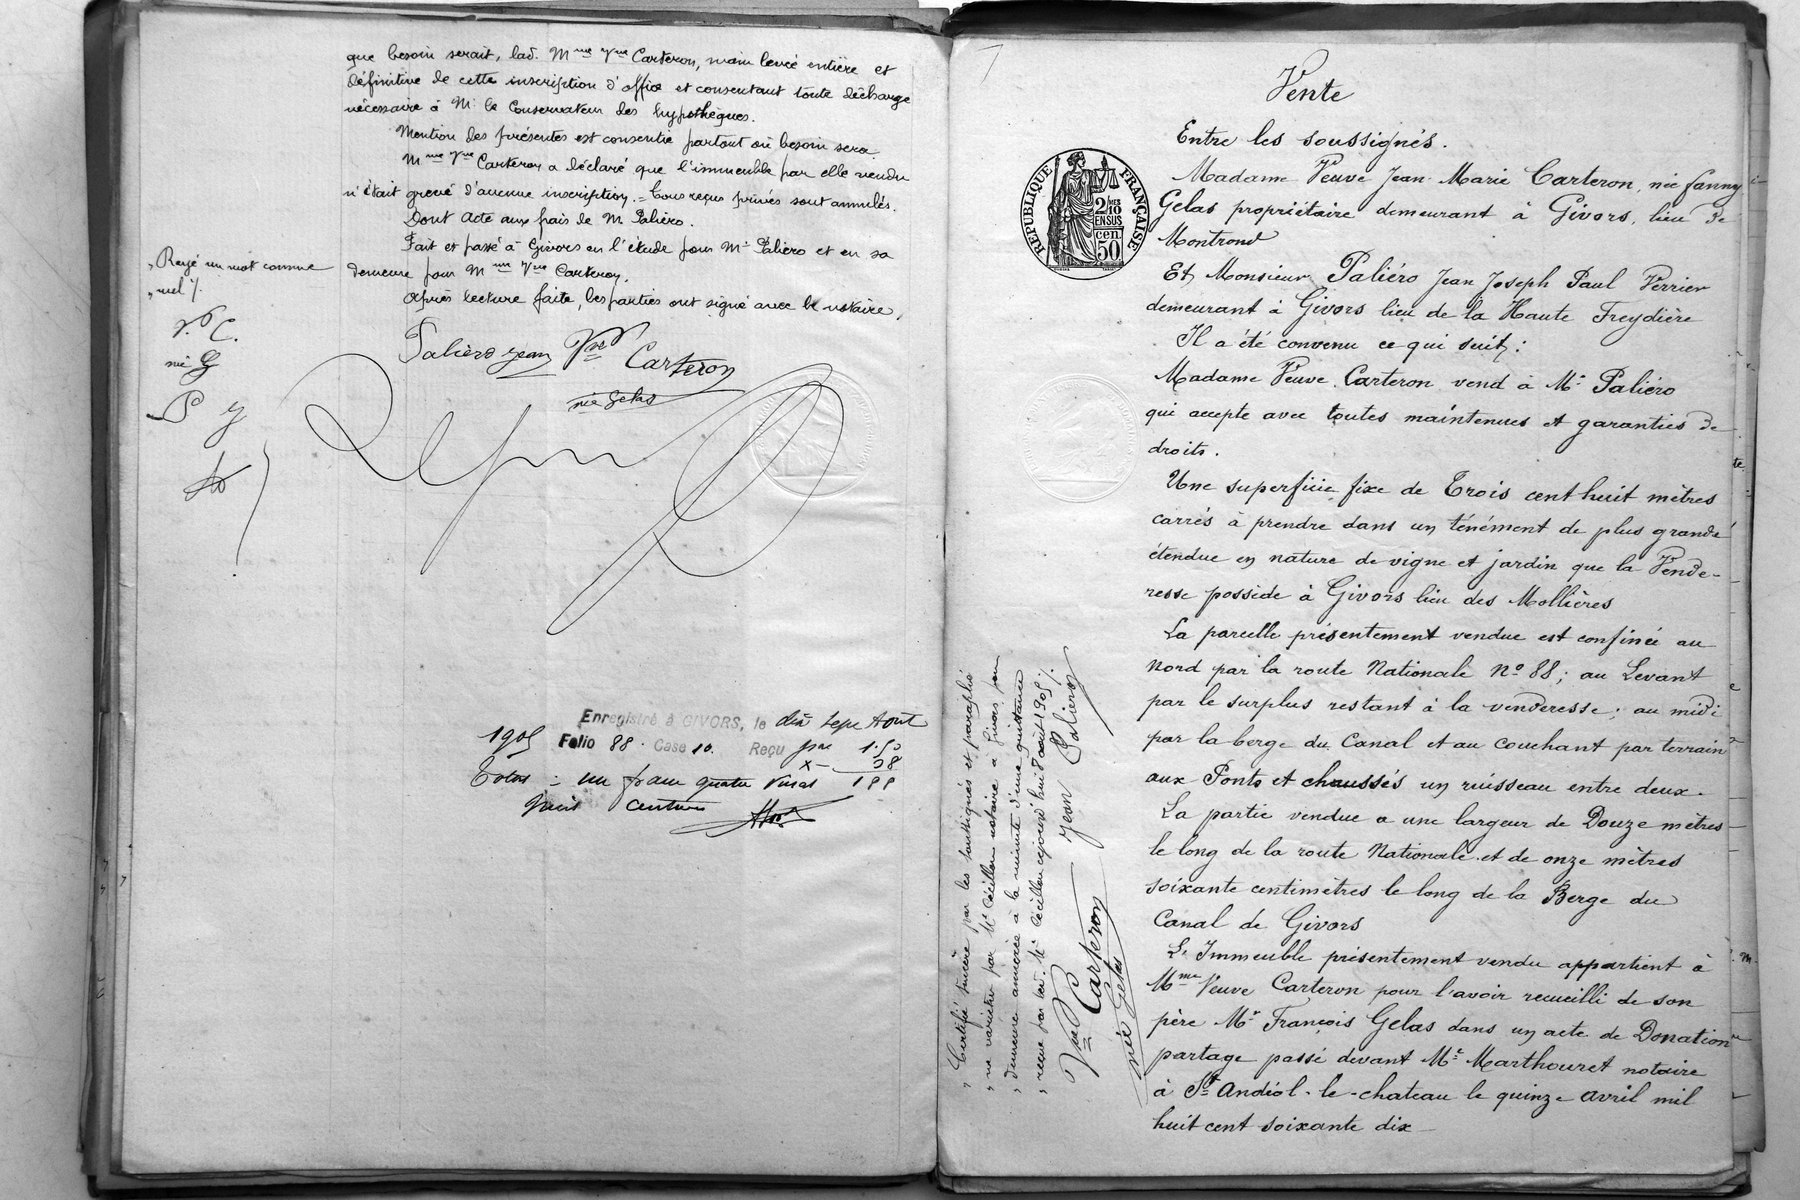 que besoin serait, lad. Mme Vve Carteron, main levée entière et
définitive de cette inscription d'office et consentant toute décharge
nécessaire à Mr le Conservateur des hypothèques.
Mention des présentes est consentie partout où besoin sera.
Mme Vve Carteron a déclaré que l'immeuble par elle vendu
n'était grevé d'aucune inscription. = Tous reçus privés sont annulés.
Dont acte aux frais de M. Paliéro.
Fait et passé à Givors en l'étude pour Mr Paliéro et en sa
demeure pour Mme Vve Carteron.
Après lecture faite, les parties ont signé avec le notaire.
"Rayé un mot comme
"nul ./.
V.ve C.
née G
P J
Paliéro Jean Vve Carteron
née Gelas
Enregistré à GIVORS, le dix sept Août
1905 Folio 88 Case 10. Reçu 1.50
38
Total : un franc quatre vingt 188
huit centimes
Vente
RÉPUBLIQUE FRANÇAISE
2/10
EN SUS
50 cen.
Entre les soussignés.
Madame Veuve Jean Marie Carteron, née fanny
Gelas propriétaire demeurant à Givors, lieu de
Montrond
Et Monsieur Paliéro Jean Joseph Paul Verrier
demeurant à Givors lieu de la Haute Freydière
Il a été convenu ce qui suit :
Madame Veuve Carteron vend à Mr Paliéro
qui accepte avec toutes maintenues et garanties de
droits.
Une superficie fixe de Trois cent huit mètres
carrés à prendre dans un ténément de plus grande
étendue en nature de vigne et jardin que la Vende-
resse possède à Givors lieu des Mollières
La parcelle présentement vendue est confinée au
Nord par la route Nationale No 88 ; au Levant
par le surplus restant à la venderesse ; au midi
par la berge du Canal et au couchant par terrain
aux Ponts et chaussés un ruisseau entre deux.
La partie vendue a une largeur de Douze mètres
le long de la route Nationale et de onze mètres
soixante centimètres le long de la Berge du
Canal de Givors
L'Immeuble présentement vendu appartient à
Mme Veuve Carteron pour l'avoir recueilli de son
père Mr François Gelas dans un acte de Donation
partage passé devant Me Marthouret notaire
à St Andéol-le-chateau le quinze avril mil
huit cent soixante dix
"Certifié sincère par les soussignés et paraphé
"ne varietur par Me Cécillon notaire à Givors, pour
"demeurer annexé à la minute d'une quittance
"reçue par led. Me Cécillon cejourd'hui 8 août 1905 ./.
Vve Carteron Jean Paliéro
née Gelas